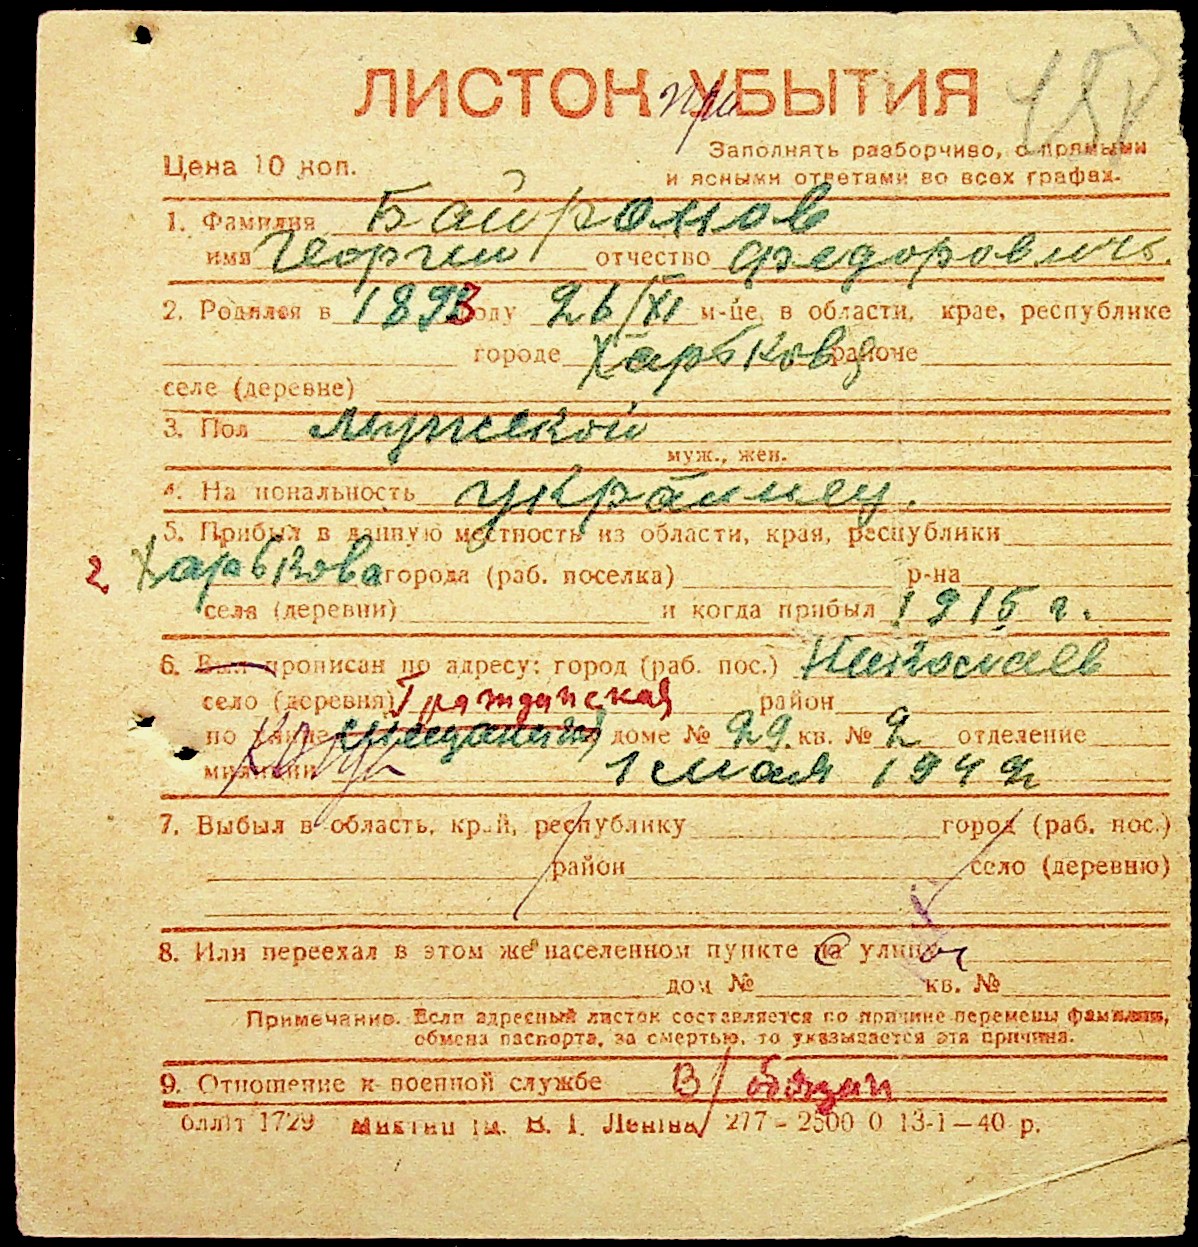 ЛИСТОК при УБЫТИЯ
Цена 10 коп.
Заполнять разборчиво, с прямыми
и ясными ответами во всех графах.
1. Фамилия Байрамов
имя Георгий отчество Федорович.
2. Родился в 1893 году 26/XI м-це, в области, крае, республике
городе Харькове районе
селе (деревне)
3. Пол мужской
муж., жен.
4. Национальность украинец.
5. Прибыл в данную местность из области, края, республики
г Харькова города (раб. поселка) р-на
села (деревни) и когда прибыл 1915 г.
6. Был прописан по адресу: город (раб. пос.) Николаев
село (деревня) Гражданская район
по улице доме № 29 кв. № 2 отделение
милиции 1 мая 1942
7. Выбыл в область, край, республику город (раб. пос.)
район село (деревню)
8. Или переехал в этом же населенном пункте на улицу
дом № кв. №
Примечание. Если адресный листок составляется по причине перемены фамилии,
обмена паспорта, за смертью, то указывается эта причина.
9. Отношение к военной службе В/обязан
блліт 1729 Миктип ім. В. І. Леніна 277 - 2500 0 13-1-40 р.